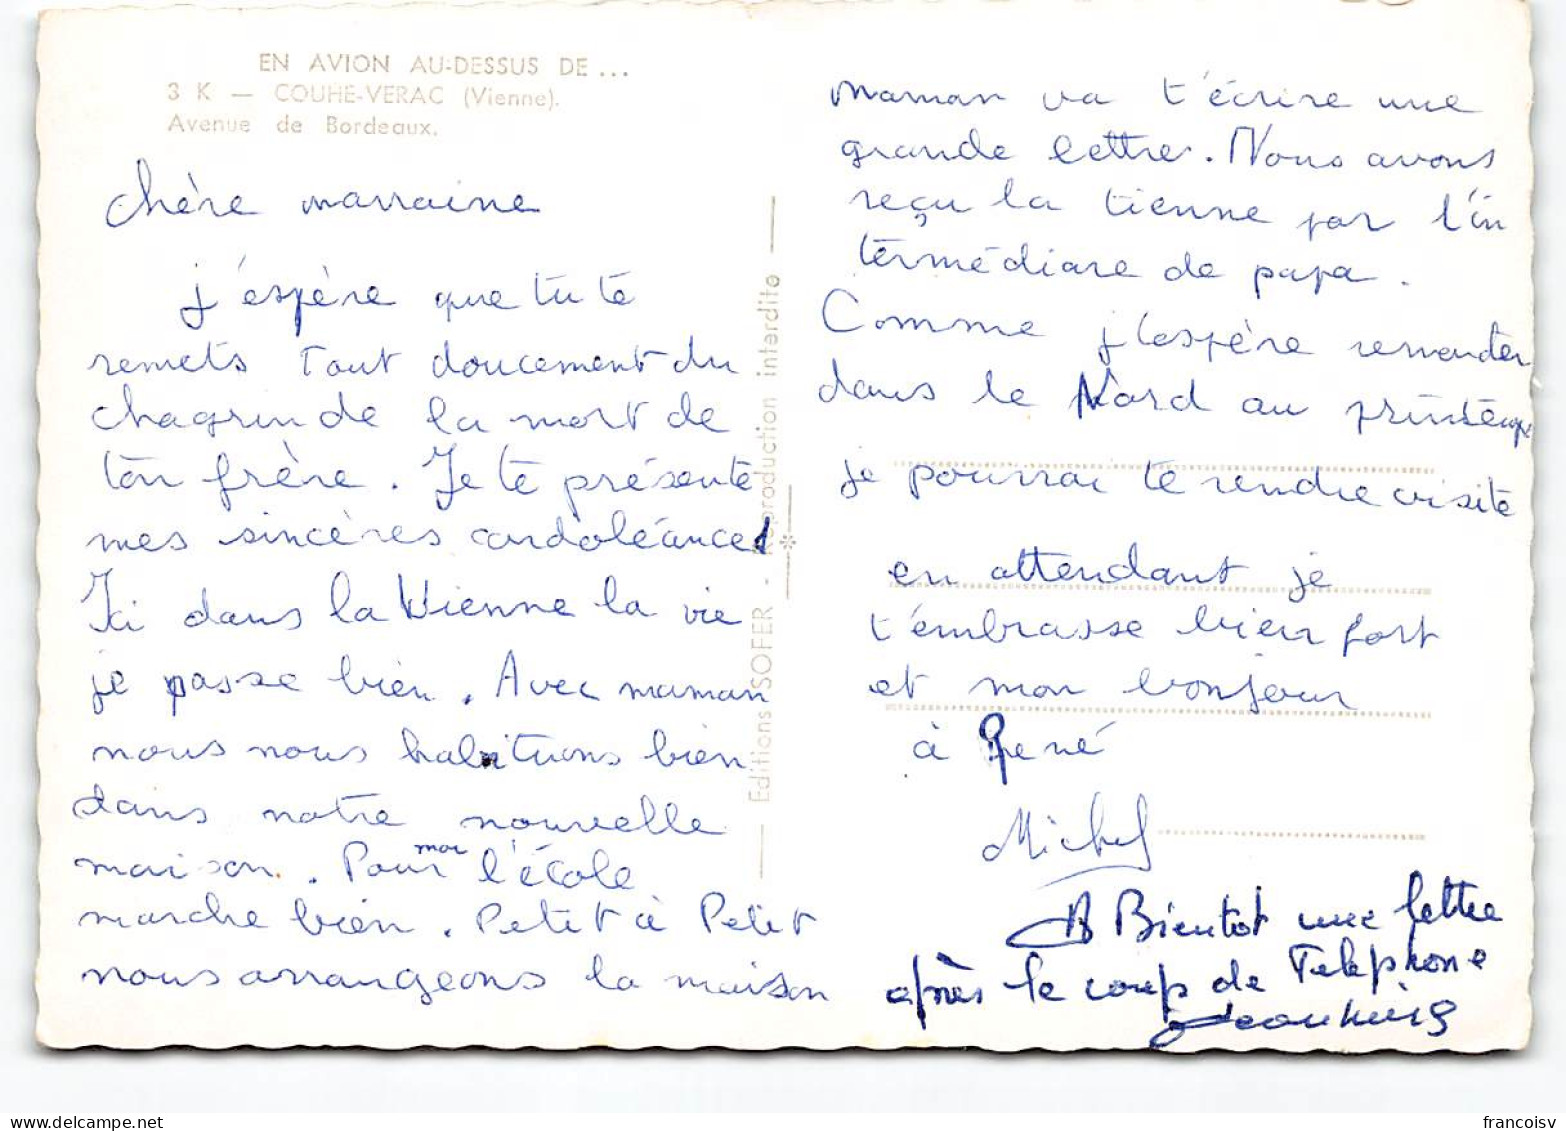 EN AVION AU-DESSUS DE ...
3 K — COUHE-VERAC (Vienne).
Avenue de Bordeaux.
Chère marraine
j'espère que tu te
remets tout doucement du
chagrin de la mort de
ton frère. Je te présente
mes sincères condoléances
Ici dans la Vienne la vie
je passe bien. Avec maman
nous nous habituons bien
dans notre nouvelle
maison. Pour moi l'école
marche bien. Petit à Petit
nous arrangeons la maison
Editions SOFER - Reproduction interdite
maman va t'écrire une
grande lettre. Nous avons
reçu la tienne par l'in
termédiare de papa.
Comme j'espère remonter
dans le Nord au printemps
je pourrai te rendre visite
en attendant je
t'embrasse bien fort
et mon bonjour
à René
Michel
A Bientot une lettre
après le coup de Telephone
francoisv